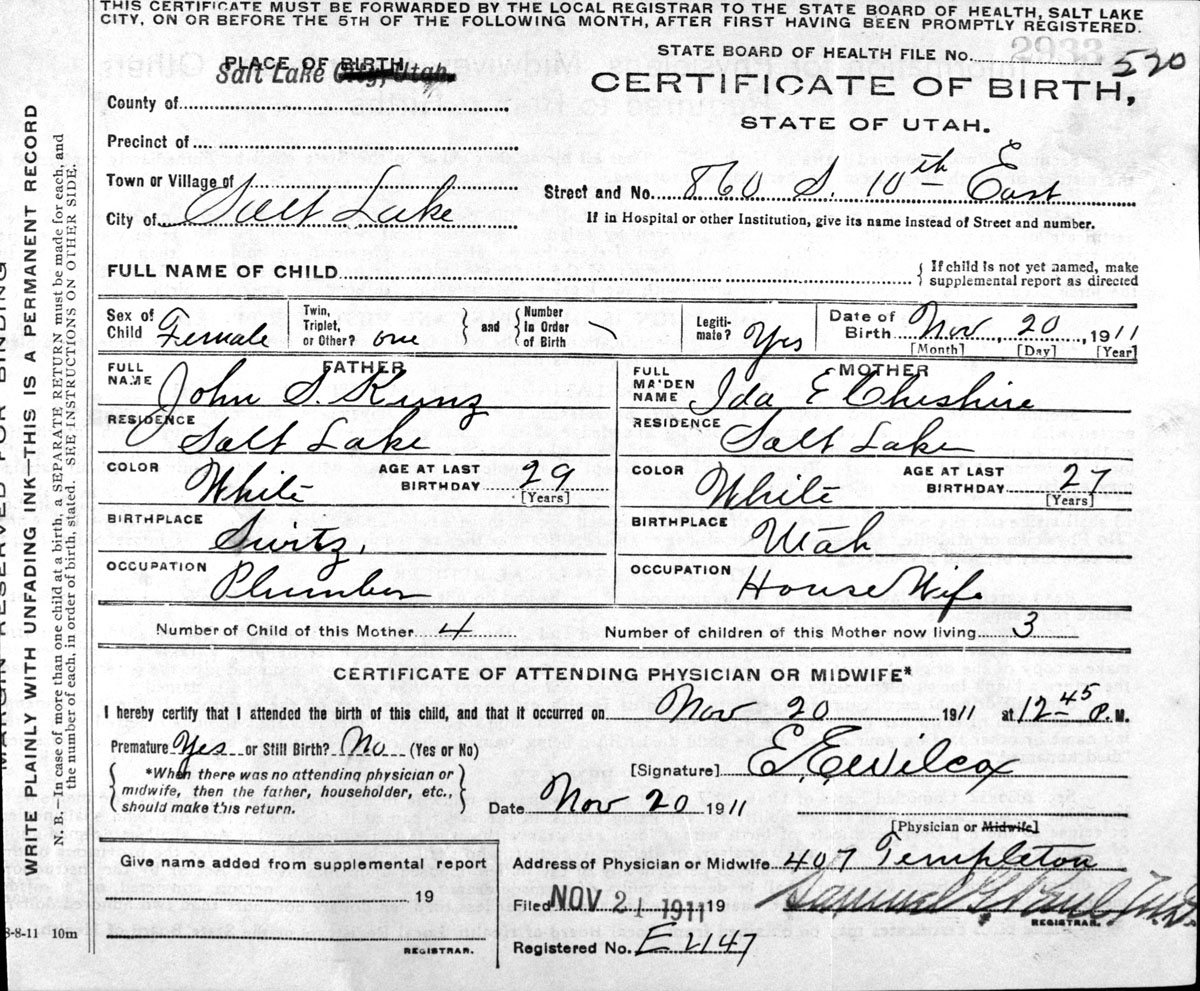 THIS CERTIFICATE MUST BE FORWARDED BY THE LOCAL REGISTRAR TO THE STATE BOARD OF HEALTH, SALT LAKE
CITY, ON OR BEFORE THE 5TH OF THE FOLLOWING MONTH, AFTER FIRST HAVING BEEN PROMPTLY REGISTERED.
WRITE PLAINLY WITH UNFADING INK-THIS IS A PERMANENT RECORD
N. B.-In case of more than one child at a birth, a SEPARATE RETURN must be made for each, and
the number of each, in order of birth, stated. SEE INSTRUCTIONS ON OTHER SIDE.
8-8-11 10m
PLACE OF BIRTH.
Salt Lake City, Utah.
County of
Precinct of
Town or Village of
City of Salt Lake
STATE BOARD OF HEALTH FILE No. 520
CERTIFICATE OF BIRTH,
STATE OF UTAH.
Street and No. 860 S. 10th East
If in Hospital or other Institution, give its name instead of Street and number.
FULL NAME OF CHILD
If child is not yet named, make
supplemental report as directed
Sex of Child Female
Twin, Triplet, or Other? one
and Number In Order of Birth
Legiti- mate? Yes
Date of Birth Nov, 20, 1911
[Month] [Day] [Year]
FATHER
FULL NAME John S. Kunz
RESIDENCE Salt Lake
COLOR White AGE AT LAST BIRTHDAY 29
[Years]
BIRTHPLACE Switz.
OCCUPATION Plumber
MOTHER
FULL MAIDEN NAME Ida E Cheshire
RESIDENCE Salt Lake
COLOR White AGE AT LAST BIRTHDAY 27
[Years]
BIRTHPLACE Utah
OCCUPATION House Wife
Number of Child of this Mother 4 Number of children of this Mother now living 3
CERTIFICATE OF ATTENDING PHYSICIAN OR MIDWIFE*
I hereby certify that I attended the birth of this child, and that it occurred on Nov 20 1911 at 12 45 P. M.
Premature Yes or Still Birth? No (Yes or No)
*When there was no attending physician or
midwife, then the father, householder, etc.,
should make this return.
[Signature] E. E. Wilcox
Date Nov 20 1911
[Physician or Midwife]
Give name added from supplemental report
19
REGISTRAR.
Address of Physician or Midwife 407 Templeton
Filed NOV 21 1911 19
REGISTRAR.
Registered No.